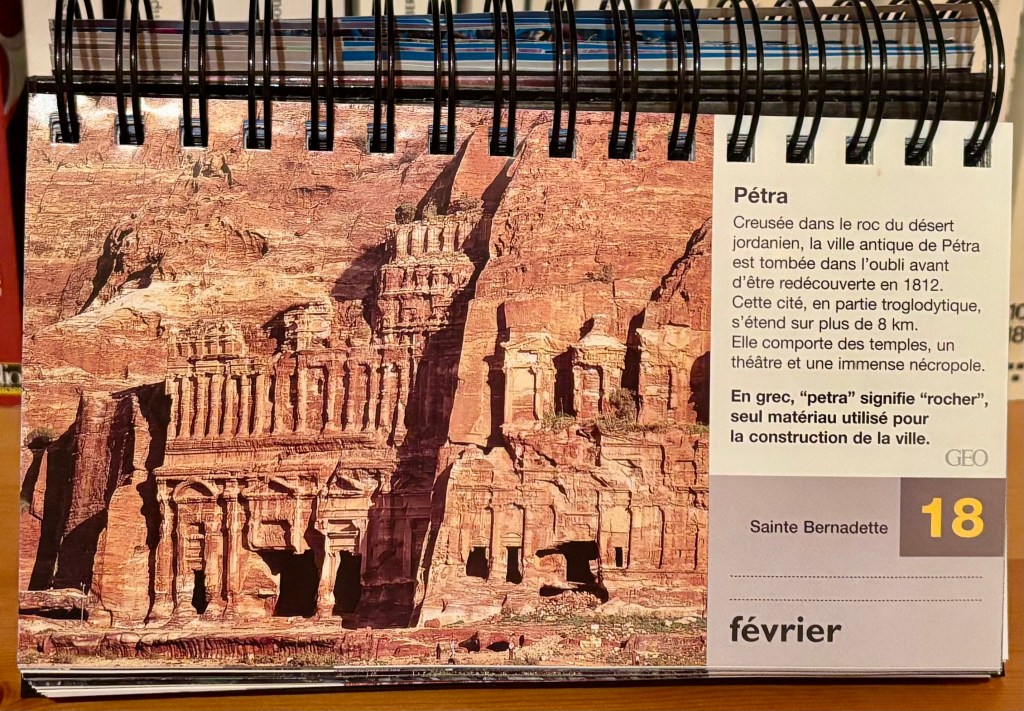 Pétra
Creusée dans le roc du désert
jordanien, la ville antique de Pétra
est tombée dans l'oubli avant
d'être redécouverte en 1812.
Cette cité, en partie troglodytique,
s'étend sur plus de 8 km.
Elle comporte des temples, un
théâtre et une immense nécropole.
En grec, “petra” signifie “rocher”,
seul matériau utilisé pour
la construction de la ville.
GEO
Sainte Bernadette
18
février